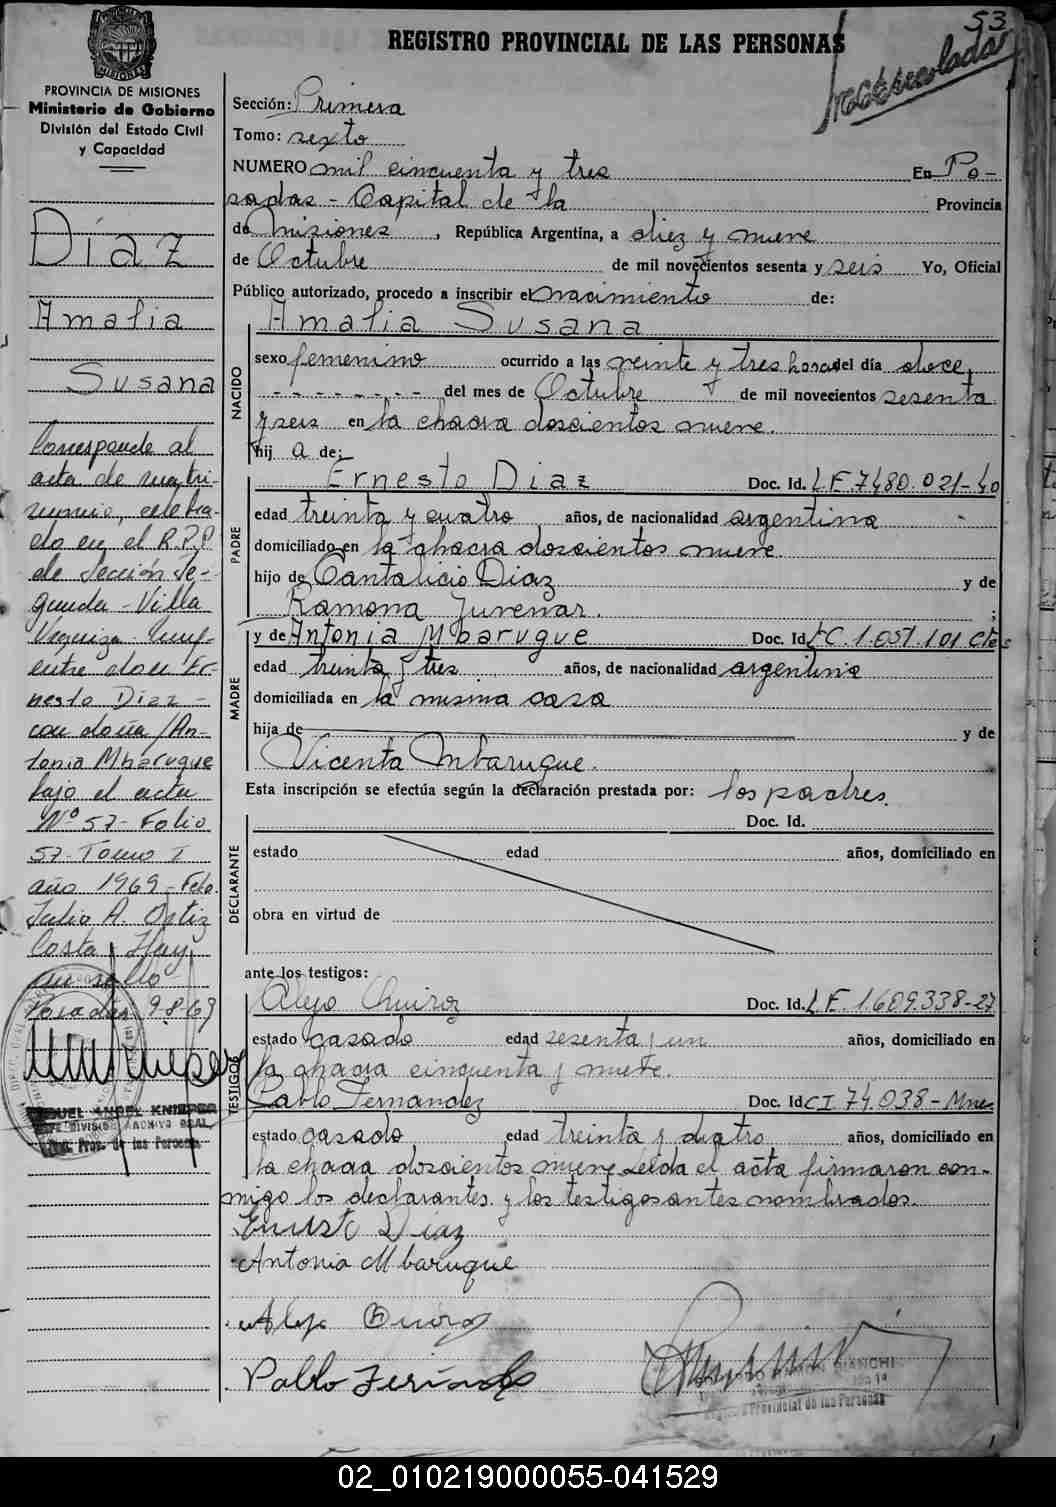 53
REGISTRO PROVINCIAL DE LAS PERSONAS
PROVINCIA DE MISIONES
Ministerio de Gobierno
División del Estado Civil
y Capacidad
Díaz
Amalia
Susana
Corresponde al
acta de matri-
monio, celebra-
do en el R.P.P.
de Sección Se-
gunda - Villa
Urquiza
entre don Er-
nesto Diaz -
con doña /An-
tonia Mbarugue
bajo el acta
Nº 57 - Folio
57 - Tomo I
año 1969 - Fdo.
Julio A. Ortiz
Costa Hay
un sello
Posadas 9-8-69
MIGUEL ANGEL KNIEPER
JEFE DIVISION ARCHIVO GRAL.
Reg. Prov. de las Personas
Sección: Primera
Tomo: sexto
NUMERO mil cincuenta y tres En Po-
sadas - Capital de la Provincia
de Misiones, República Argentina, a diez y nueve
de Octubre de mil novecientos sesenta y seis Yo, Oficial
Público autorizado, procedo a inscribir el nacimiento de:
NACIDO
Amalia Susana
sexo femenino ocurrido a las veinte y tres horas del día doce
- - - - - - - - del mes de Octubre de mil novecientos sesenta
y seis en la chacra doscientos nueve.
hij a de:
PADRE
Ernesto Diaz Doc. Id. L.E. 7480.021-40
edad treinta y cuatro años, de nacionalidad argentina
domiciliado en la chacra doscientos nueve.
hijo de Cantalicio Diaz y de
Ramona Juvenar. ;
MADRE
y de Antonia Mbarugue Doc. Id. C. 1.051.101 Ctes
edad treinta y tres años, de nacionalidad argentina
domiciliada en la misma casa
hija de y de
Vicenta Mbarugue.
Esta inscripción se efectúa según la declaración prestada por: los padres.
DECLARANTE
Doc. Id.
estado edad años, domiciliado en
obra en virtud de
ante los testigos:
TESTIGOS
Alejo Quiroz Doc. Id. L.E. 1.609.338-27
estado casado edad sesenta y un años, domiciliado en
la chacra cincuenta y nueve.
Pablo Fernandez Doc. Id. C I 74.038 - Mnes
estado casado edad treinta y cuatro años, domiciliado en
la chacra doscientos nueve Leida el acta firmaron con-
migo los declarantes y los testigos antes nombrados.
Ernesto Diaz
Antonia Mbarugue
Alejo Quiroz
Pablo Fernandez
RAMON BIANCHI
Registro Provincial de las Personas
02_010219000055-041529